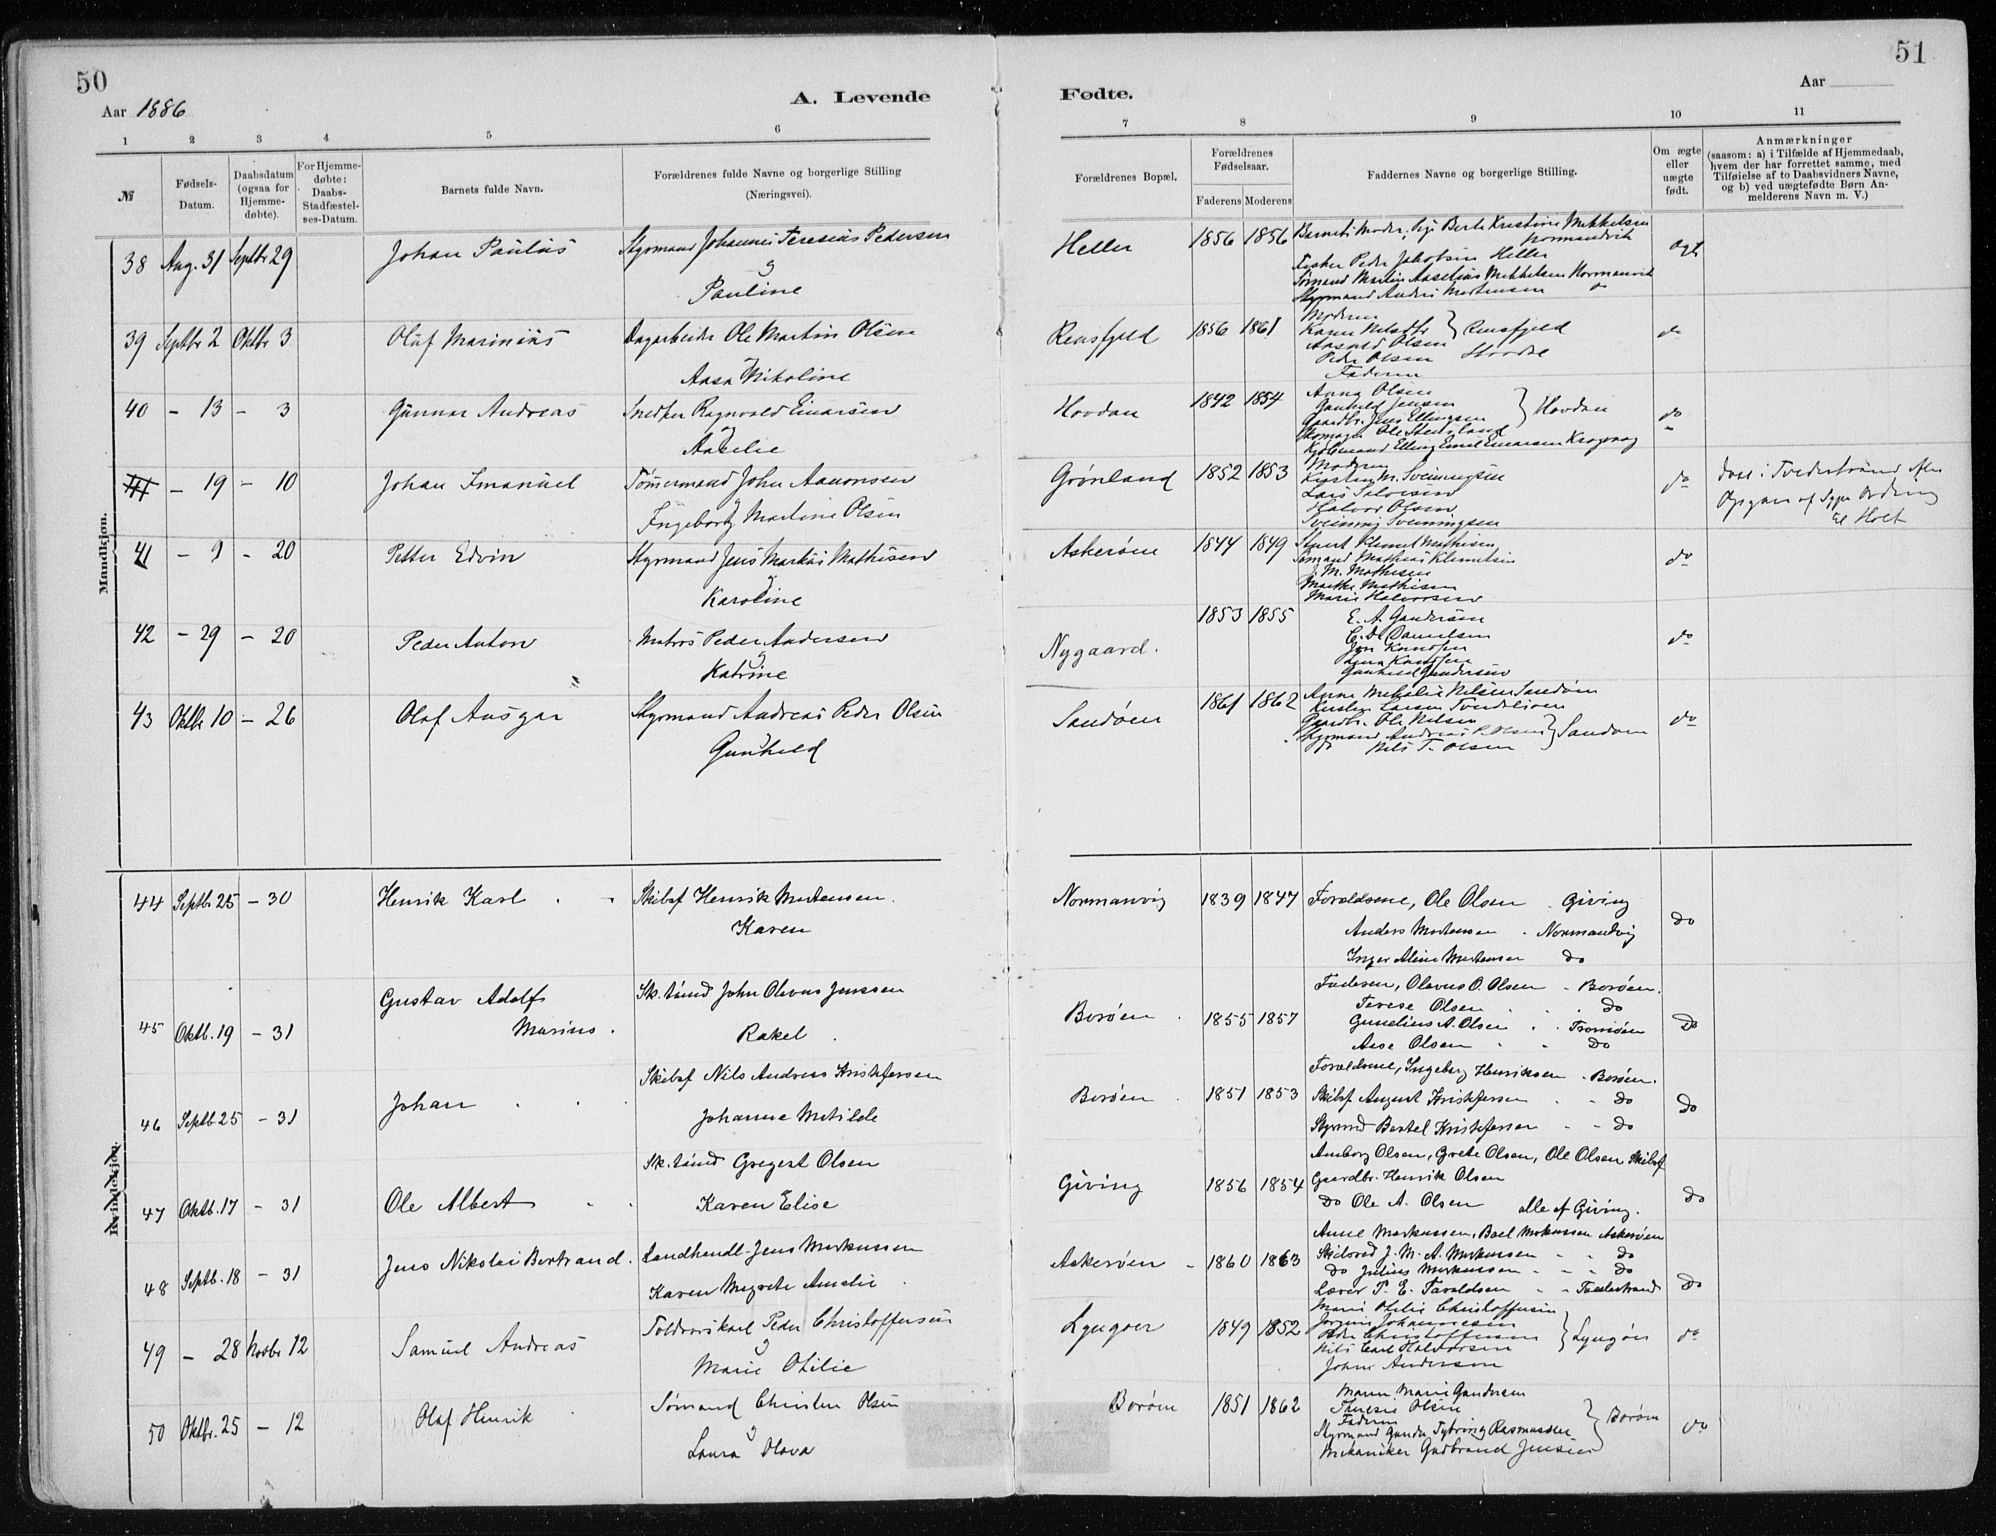 50
Aar 1886
A. Levende
1 2 3 4 5 6
№
Fødsels-Datum.
Daabsdatum (ogsaa for Hjemme-døbte).
For Hjemme-døbte: Daabs-Stadfæstel-ses-Datum.
Barnets fulde Navn.
Forældrenes fulde Navne og borgerlige Stilling
(Næringsvei).
Mandkjøn.
38 Aug. 31 Septbr 29 Johan Paulus Styrmand Johannes Teresius Pedersen
og
Pauline
39 Septbr 2 Oktbr 3 Olaf Marinius Dagarbeider Ole Martin Olsen
og
Aasa Nikoline
40 - 13 - 3 Gunnar Andreas Snedker Ragnvald Einarsen
og
Amelie
41 - 19 - 10 Johan Imanuel Tømmermand John Aanonsen
og
Ingeborg Martine Olsen
41 - 9 - 20 Petter Edvin Styrmand Jens Markus Mathisen
og
Karoline
42 - 29 - 20 Peder Anton Matros Peder Andersen
og
Katrine
43 Oktbr 10 - 26 Olaf Ansgar Styrmand Andreas Peder Olsen
og
Gunhild
Kvindekjøn.
44 Septbr 25 - 30 Henrik Karl Skibsf Henrik Mortensen.
Karen
45 Oktb. 19 - 31 Gustav Adolf Sk.tømd John Olavus Jenssen
Marius. Rakel
46 Septb 25 - 31 Johan Skibsf Nils Andreas Kristofersen
Johanne Matilde
47 Oktb. 17 - 31 Ole Albert Sk.tømd Gregert Olsen
Karen Elise
48 Septb. 18 - 31 Jens Nikolai Bertrand. Landhandl. Jens Markussen
Karen Margrete Amalie
49 - 28 Novbr 12 Samuel Andreas Toldvarskarl Peder Christoffersen
og
Marie Otilie
50 Oktbr. 25 - 12 Olaf Henrik Sømand Christen Olsen
og
Laura Olava
51
Fødte.
Aar
7 8 9 10 11
Forældrenes Bopæl.
Forældrenes Fødselsaar.
Faderens Moderens
Faddernes Navne og borgerlige Stilling.
Om ægte eller uægte født.
Anmærkninger
(saasom: a) i Tilfælde af Hjemmedaab,
hvem der har forrettet samme, med
Tilføielse af to Daabsvidners Navne,
og b) ved uægtefødte Børn An-
melderens Navn m. V.)
Heller 1856 1856 Barnets Moder, Berte Kristine Mikkelsen
Normandvik
Fisker Peder Jakobsen Heller
Sømand Martin Aaselius Mikkelsen Normanvik
Styrmand Anders Mortensen do
ægte
Rensfjeld 1856 1861 Moderen
Olsen } Rensfjeld
Peder Olsen
Faderen
do
Hovdan 1842 1854 Anna Olsen
Gunhild Jensen
Gaardbr. Jens Ellingsen } Hovdan
Skomager Ole
Elling Emil Einarsen Kragerø
do
Grønland 1852 1853 Moderen
Kirsten M. Sveinungsen
Lars Salvesen
Halvor Olsen
Sveinung Sveinungsen
do
i Tvedestrand efter
Opgave af
Holt
Askerøen 1844 1849 Klemet Mathisen
Sømand Mathias Klemetsen
J. M. Mathisen
Marthe Mathisen
Marie Halvorsen
do
Nygaard. 1853 1855 E. A. Gundersen
Danielsen
Jon Knudsen
Anna Knudsen
Gunhild Gundersen
do
Sandøen 1861 1862 Anne Nilsen Sandøen
Kirsten Larsen
Gaardbr. Ole Nilsen
Styrmand Andreas P. Olsen } Sandøen
do Nils T. Olsen
do
Normanvig 1839 1847 Forældrene, Ole Olsen Giving
Anders Mortensen Normandvig
Inger Aline Mortensen do
do
Borøen 1855 1857 Faderen, Olavus O. Olsen - Borøen.
Terese Olsen do
Gunelius A. Olsen Tromøen
Aase Olsen do
do
Borøen 1851 1853 Forældrene, Ingeborg Henriksen - Borøen.
Skibsf August Kristofersen do
Styrmd Bertel Kristofersen do
do
Giving 1856 1854 Amborg Olsen, Grete Olsen, Ole Olsen Skibsf
Gaardbr. Henrik Olsen
do Ole A. Olsen alle af Giving.
do
Askerøen - 1860 1863 Anne Markussen, Bael Markussen Askerøen
J. M. A. Markussen do
do Julius Markussen do
Lærer T. E. Taraldsen Tvedestrand
do
Lyngøer 1849 1852 Marie Otilie Christoffersen
Jørgine Johannesen
Peder Christoffersen } Lyngøer
Nils Carl Halvorsen
Johan Anderson
do
Borøen 1851 1862 Maren Marie Gundersen
Theresie Olsen
Faderen
Styrmand Gunder Tybring Rasmussen } Borøen
Mekaniker Gudbrand Jensen
do